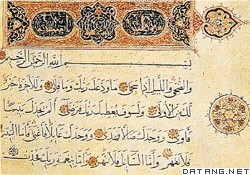 بسم الله الرحمن الرحيم
والضحى والليل اذا سجى ما ودعك ربك وما قلى وللآخرة خير
لك من الاولى ولسوف يعطيك ربك فترضى الم يجدك يتيما
فآوى ووجدك ضالا فهدى ووجدك عائلا فاغنى فاما اليتيم
فلا تقهر واما السائل فلا تنهر واما بنعمة ربك فحدث
DATANG.NET